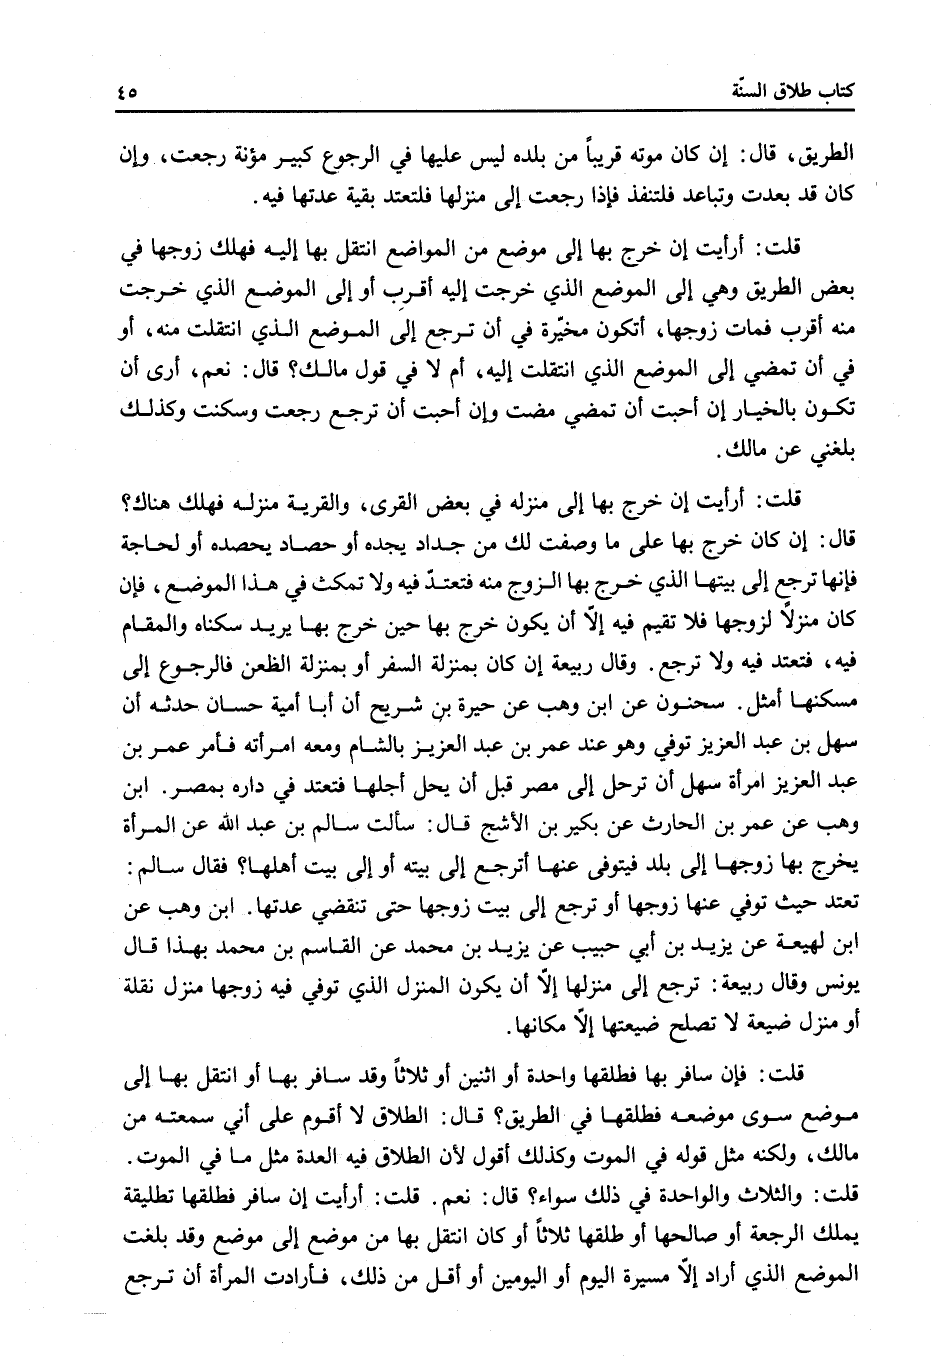 كتاب طلاق السنّة
٤٥
الطريق، قال: إن كان موته قريباً من بلده ليس عليها في الرجوع كبير مؤنة رجعت، وإن
كان قد بعدت وتباعد فلتنفذ فإذا رجعت إلى منزلها فلتعتد بقية عدتها فيه.
قلت: أرأيت إن خرج بها إلى موضع من المواضع انتقل بها إليه فهلك زوجها في
بعض الطريق وهي إلى الموضع الذي خرجت إليه أقرب أو إلى الموضع الذي خرجت
منه أقرب فمات زوجها، أتكون مخيّرة في أن ترجع إلى الموضع الذي انتقلت منه، أو
في أن تمضي إلى الموضع الذي انتقلت إليه، أم لا في قول مالك؟ قال: نعم، أرى أن
تكون بالخيار إن أحبت أن تمضي مضت وإن أحبت أن ترجع رجعت وسكنت وكذلك
بلغني عن مالك.
قلت: أرأيت إن خرج بها إلى منزله في بعض القرى، والقرية منزله فهلك هناك؟
قال: إن كان خرج بها على ما وصفت لك من جداد يجده أو حصاد يحصده أو لحاجة
فإنها ترجع إلى بيتها الذي خرج بها الزوج منه فتعتدّ فيه ولا تمكث في هذا الموضع، فإن
كان منزلاً لزوجها فلا تقيم فيه إلاّ أن يكون خرج بها حين خرج بها يريد سكناه والمقام
فيه، فتعتد فيه ولا ترجع. وقال ربيعة إن كان بمنزلة السفر أو بمنزلة الظعن فالرجوع إلى
مسكنها أمثل. سحنون عن ابن وهب عن حيرة بن شريح أن أبا أمية حسان حدثه أن
سهل بن عبد العزيز توفي وهو عند عمر بن عبد العزيز بالشام ومعه امرأته فأمر عمر بن
عبد العزيز امرأة سهل أن ترحل إلى مصر قبل أن يحل أجلها فتعتد في داره بمصر. ابن
وهب عن عمر بن الحارث عن بكير بن الأشج قال: سألت سالم بن عبد الله عن المرأة
يخرج بها زوجها إلى بلد فيتوفى عنها أترجع إلى بيته أو إلى بيت أهلها؟ فقال سالم:
تعتد حيث توفي عنها زوجها أو ترجع إلى بيت زوجها حتى تنقضي عدتها. ابن وهب عن
ابن لهيعة عن يزيد بن أبي حبيب عن يزيد بن محمد عن القاسم بن محمد بهذا قال
يونس وقال ربيعة: ترجع إلى منزلها إلاّ أن يكون المنزل الذي توفي فيه زوجها منزل نقلة
أو منزل ضيعة لا تصلح ضيعتها إلاّ مكانها.
قلت: فإن سافر بها فطلقها واحدة أو اثنين أو ثلاثاً وقد سافر بها أو انتقل بها إلى
موضع سوى موضعه فطلقها في الطريق؟ قال: الطلاق لا أقوم على أني سمعته من
مالك، ولكنه مثل قوله في الموت وكذلك أقول لأن الطلاق فيه العدة مثل ما في الموت.
قلت: والثلاث والواحدة في ذلك سواء؟ قال: نعم. قلت: أرأيت إن سافر فطلقها تطليقة
يملك الرجعة أو صالحها أو طلقها ثلاثاً أو كان انتقل بها من موضع إلى موضع وقد بلغت
الموضع الذي أراد إلاّ مسيرة اليوم أو اليومين أو أقل من ذلك، فأرادت المرأة أن ترجع